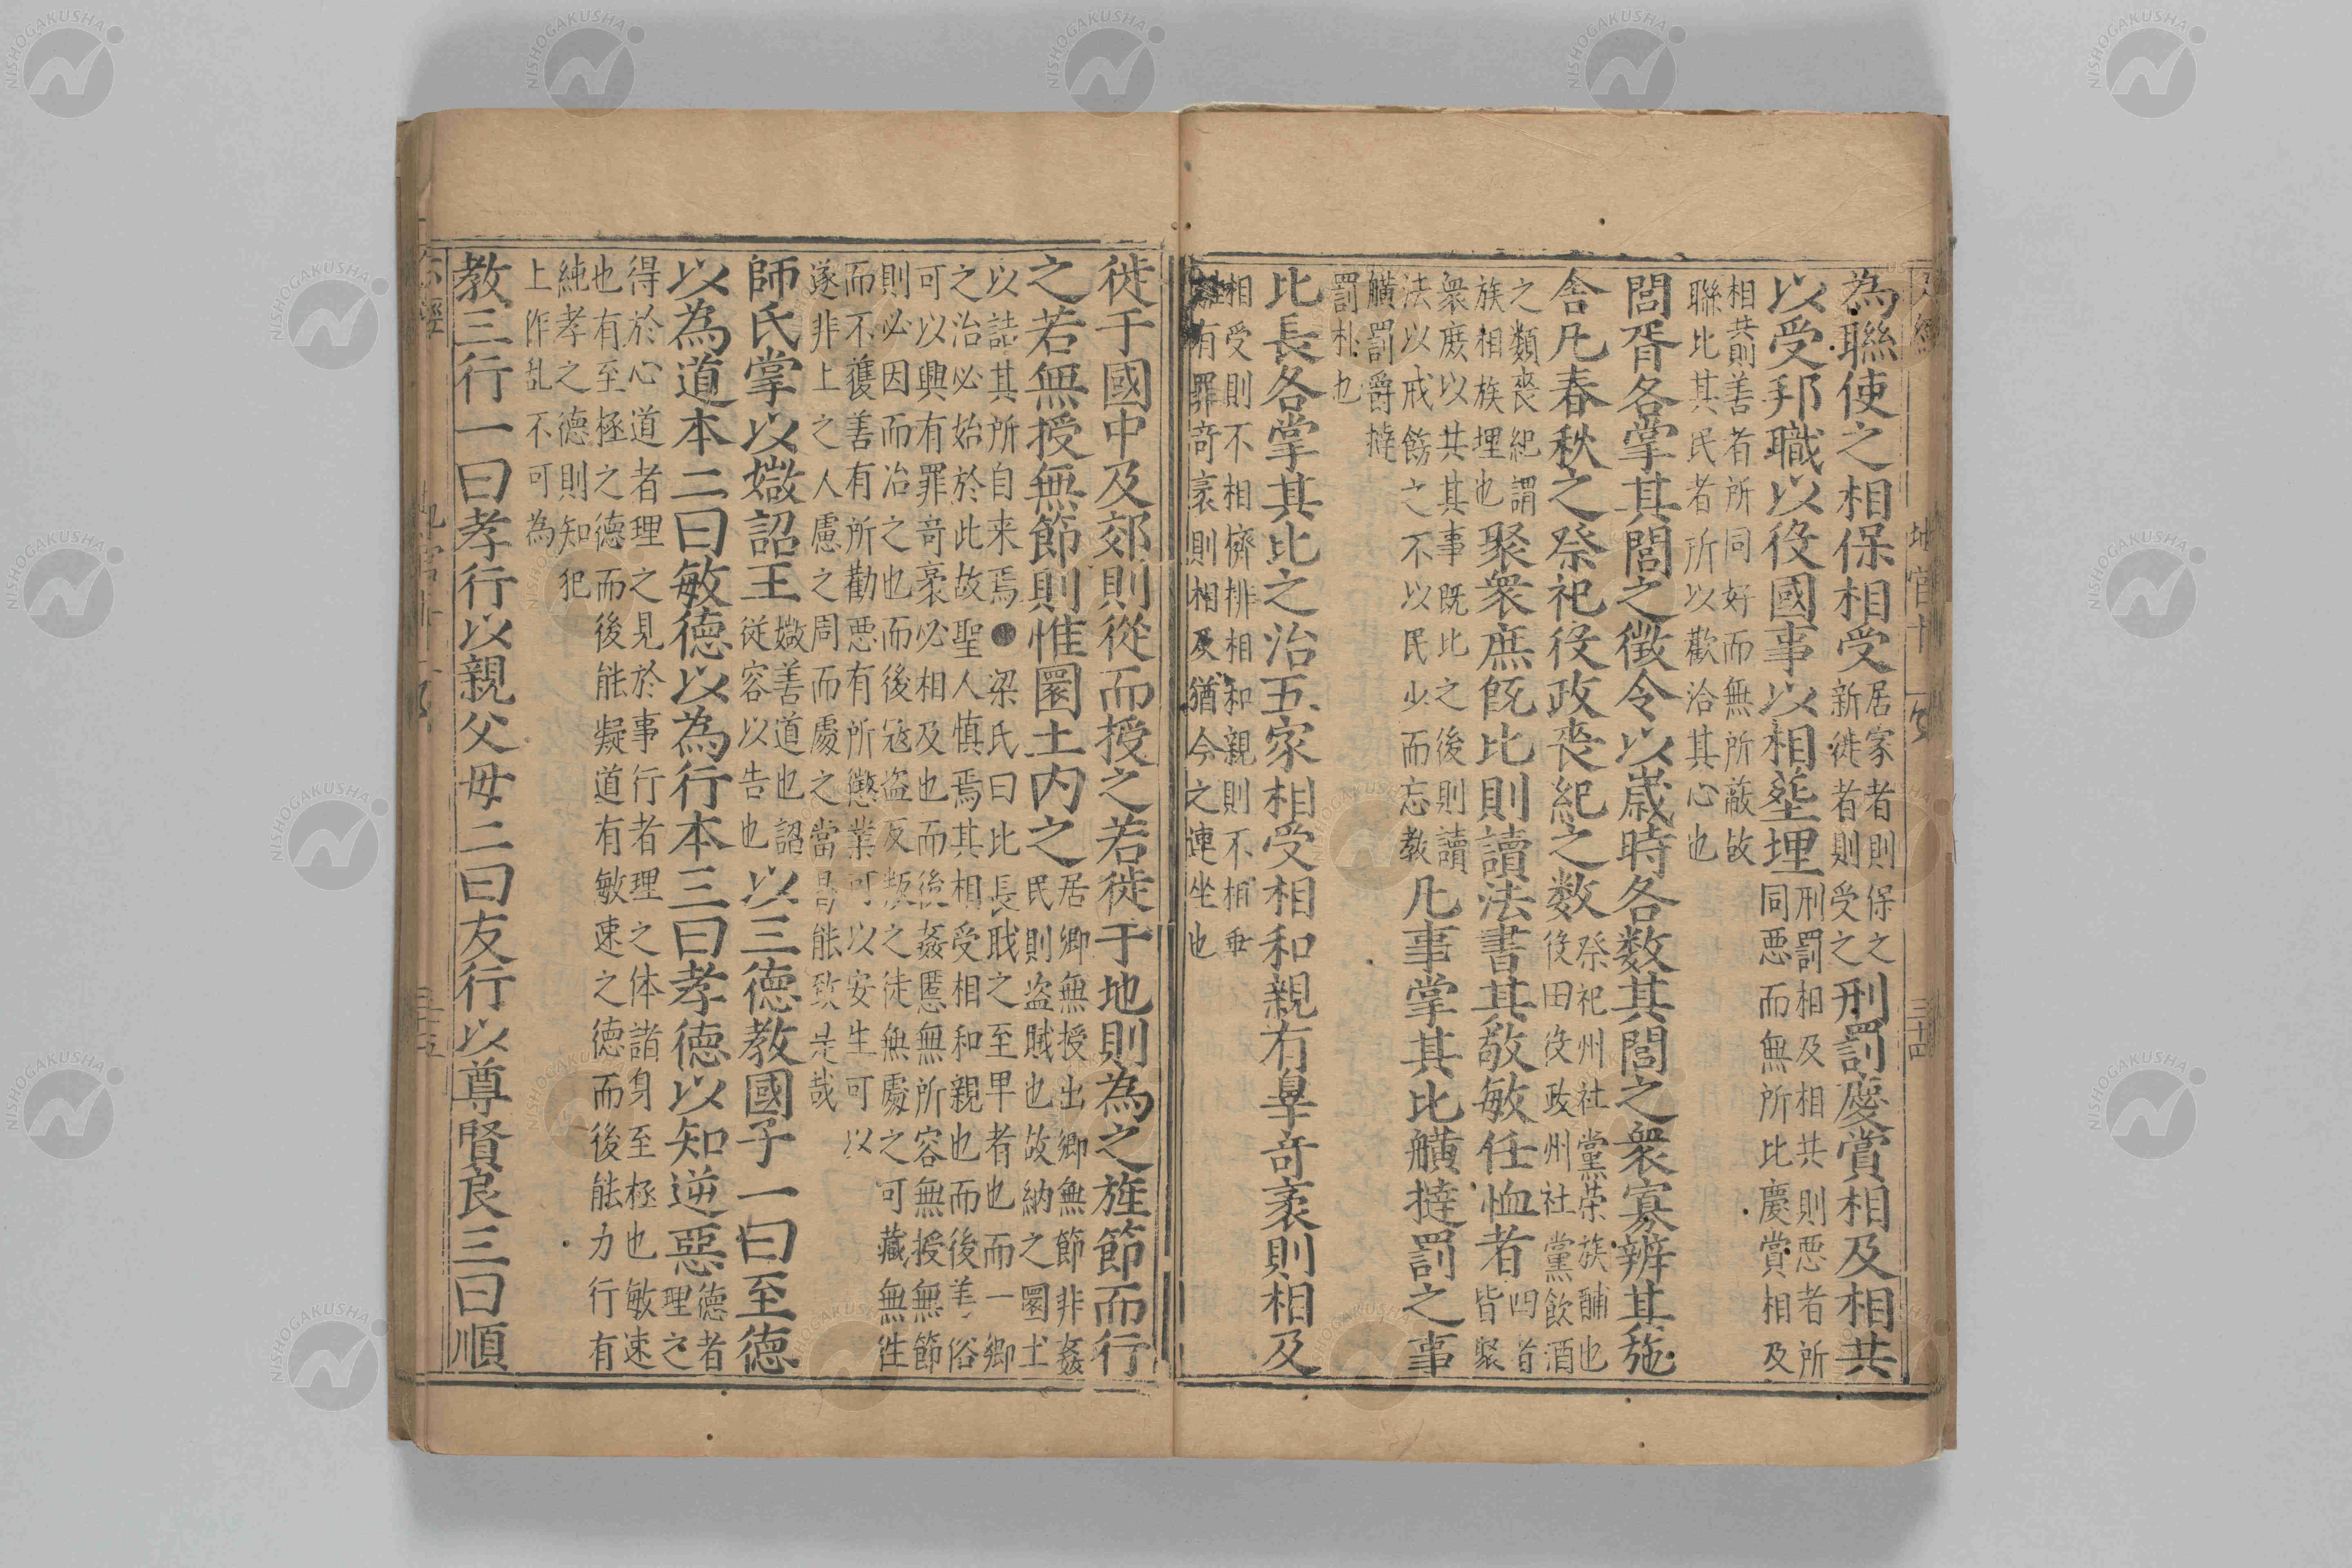 地官十
三十四
為聯使之相保相受居家者則保之新徙者則受之刑罰慶賞相及相共
以受邦職以役國事以相塟埋刑罰相及相共則悪者所同悪而無所比慶賞相及
相共則善者所同好而無所蔽故聯比其民者所以歡洽其心也
閭胥各掌其閭之徵令以歳時各数其閭之衆寡辨其施
舎凡春秋之祭祀役政喪紀之数祭祀州社黨禜族酺也役田役政州社黨飲酒
之類喪紀謂族相族埋也聚衆庶既比則讀法書其敬敏任恤者四者皆聚
衆庻以共其事既比之後則讀法以戒飭之不以民少而忘教凡事掌其比觵撻罰之事
觵罰爵撻罰朴也
比長各掌其比之治五家相受相和親有辠奇衺則相及
相受則不相擠排相和親則不相乖雖有罪竒衺則相及猶今之連坐也
徙于國中及郊則從而授之若徙于地則為之旌節而行
之若無授無節則惟圜土内之居郷無授出郷無節非姦民則盗賊也故納之圜土
以誌其所自来焉●梁氏曰比長職之至卑者也而一郷之治必始於此故聖人慎焉其相受相和親也而後羙俗
可以興有罪竒衺必相及也而後姦慝無所容無授無節則必因而治之也而後冦盗反叛之徒無處之可藏無徃
而不獲善有所勸悪有所懲業可以安生可以遂非上之人慮之周而處之當曷能致是哉
師氏掌以媺詔王媺善道也詔從容以告也以三徳教國子一曰至徳
以為道本二曰敏徳以為行本三曰孝徳以知逆惡徳者理之
得於心道者理之見於事行者理之体諸身至極也敏速也有至極之德而後能凝道有敏速之徳而後能力行有
純孝之德則知犯上作乱不可為
教三行一曰孝行以親父母二曰友行以尊賢良三曰順
三十五
NISHOGAKUSHA